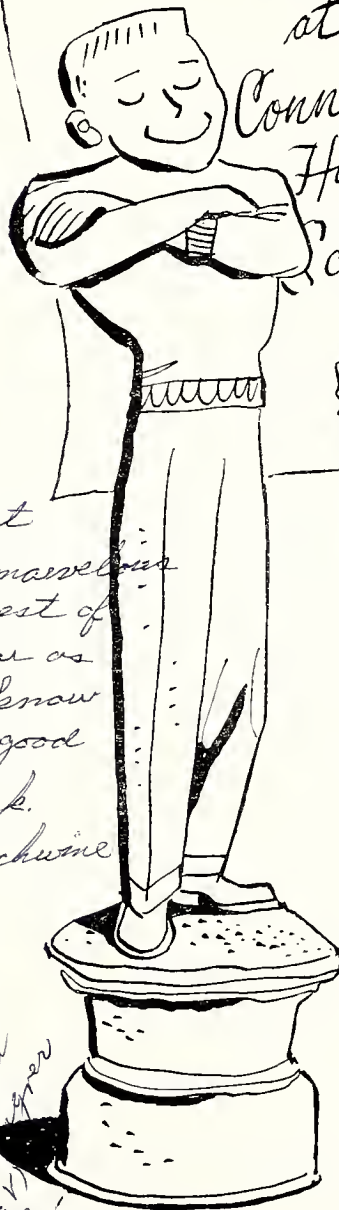 at
Conn
H
So
t
marvelous
est of
u as
know
good
k.
chwine